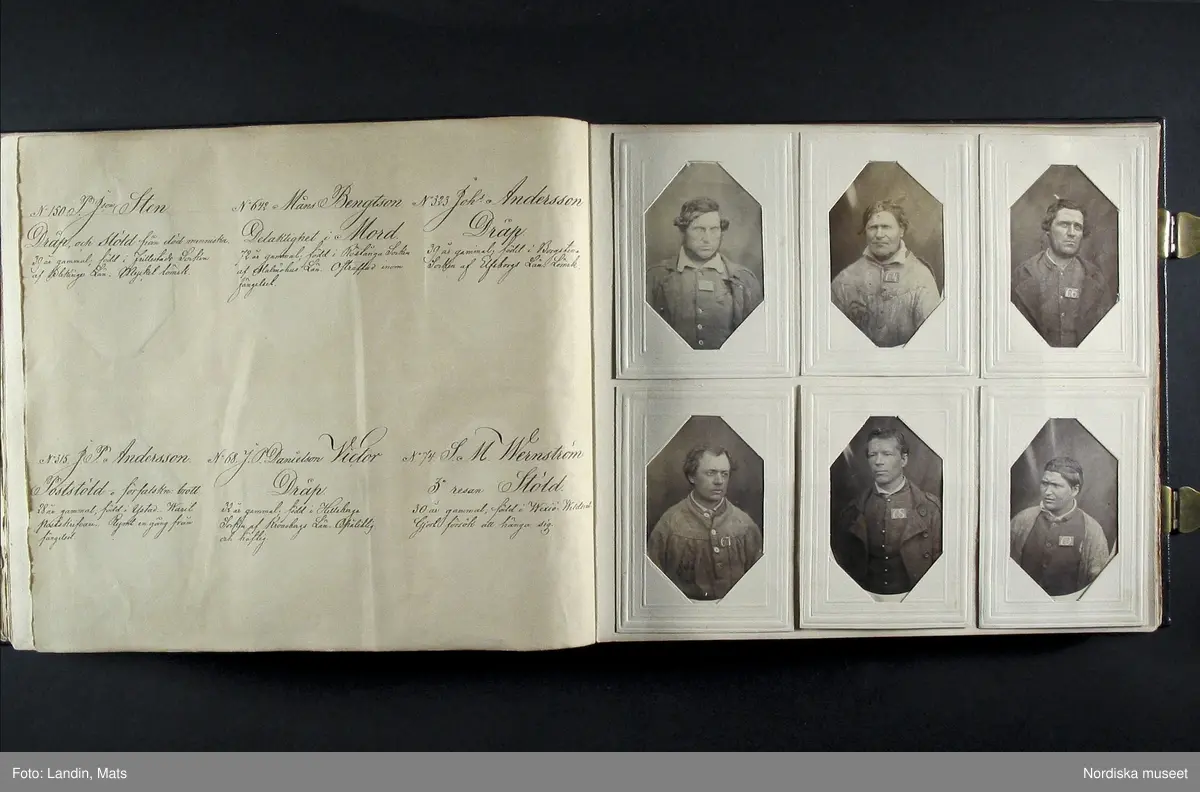 No 150. Sten
Dråp, och Stöld från död menniska.
30 år gammal, född i Socken
af Blekinge Län. Mycket lömsk
No 642 Måns Bengtson
Delaktighet i Mord
78 år gammal, född i Socken
af Malmöhus Län. Ostraffad inom
fängelset.
No 323 Johs Andersson
Dråp
30 år gammal, född i Borgstena
Socken af Elfsborgs Län. Lömsk
No 318, J. P. Andersson.
Poststöld o förfalskn: brott
28 år gammal, född i Ystad.
Rymt en gång från
fängelset.
No 68. J. P. Danielson
Dråp
33 år gammal, född i
Socken af Kronobergs Län.
och häftig.
No 74. S. M Wernström
3e resan Stöld.
30 år gammal, född i Wexiö.
Gjort försök att hänga sig.
66
Foto: Landin, Mats
Nordiska museet